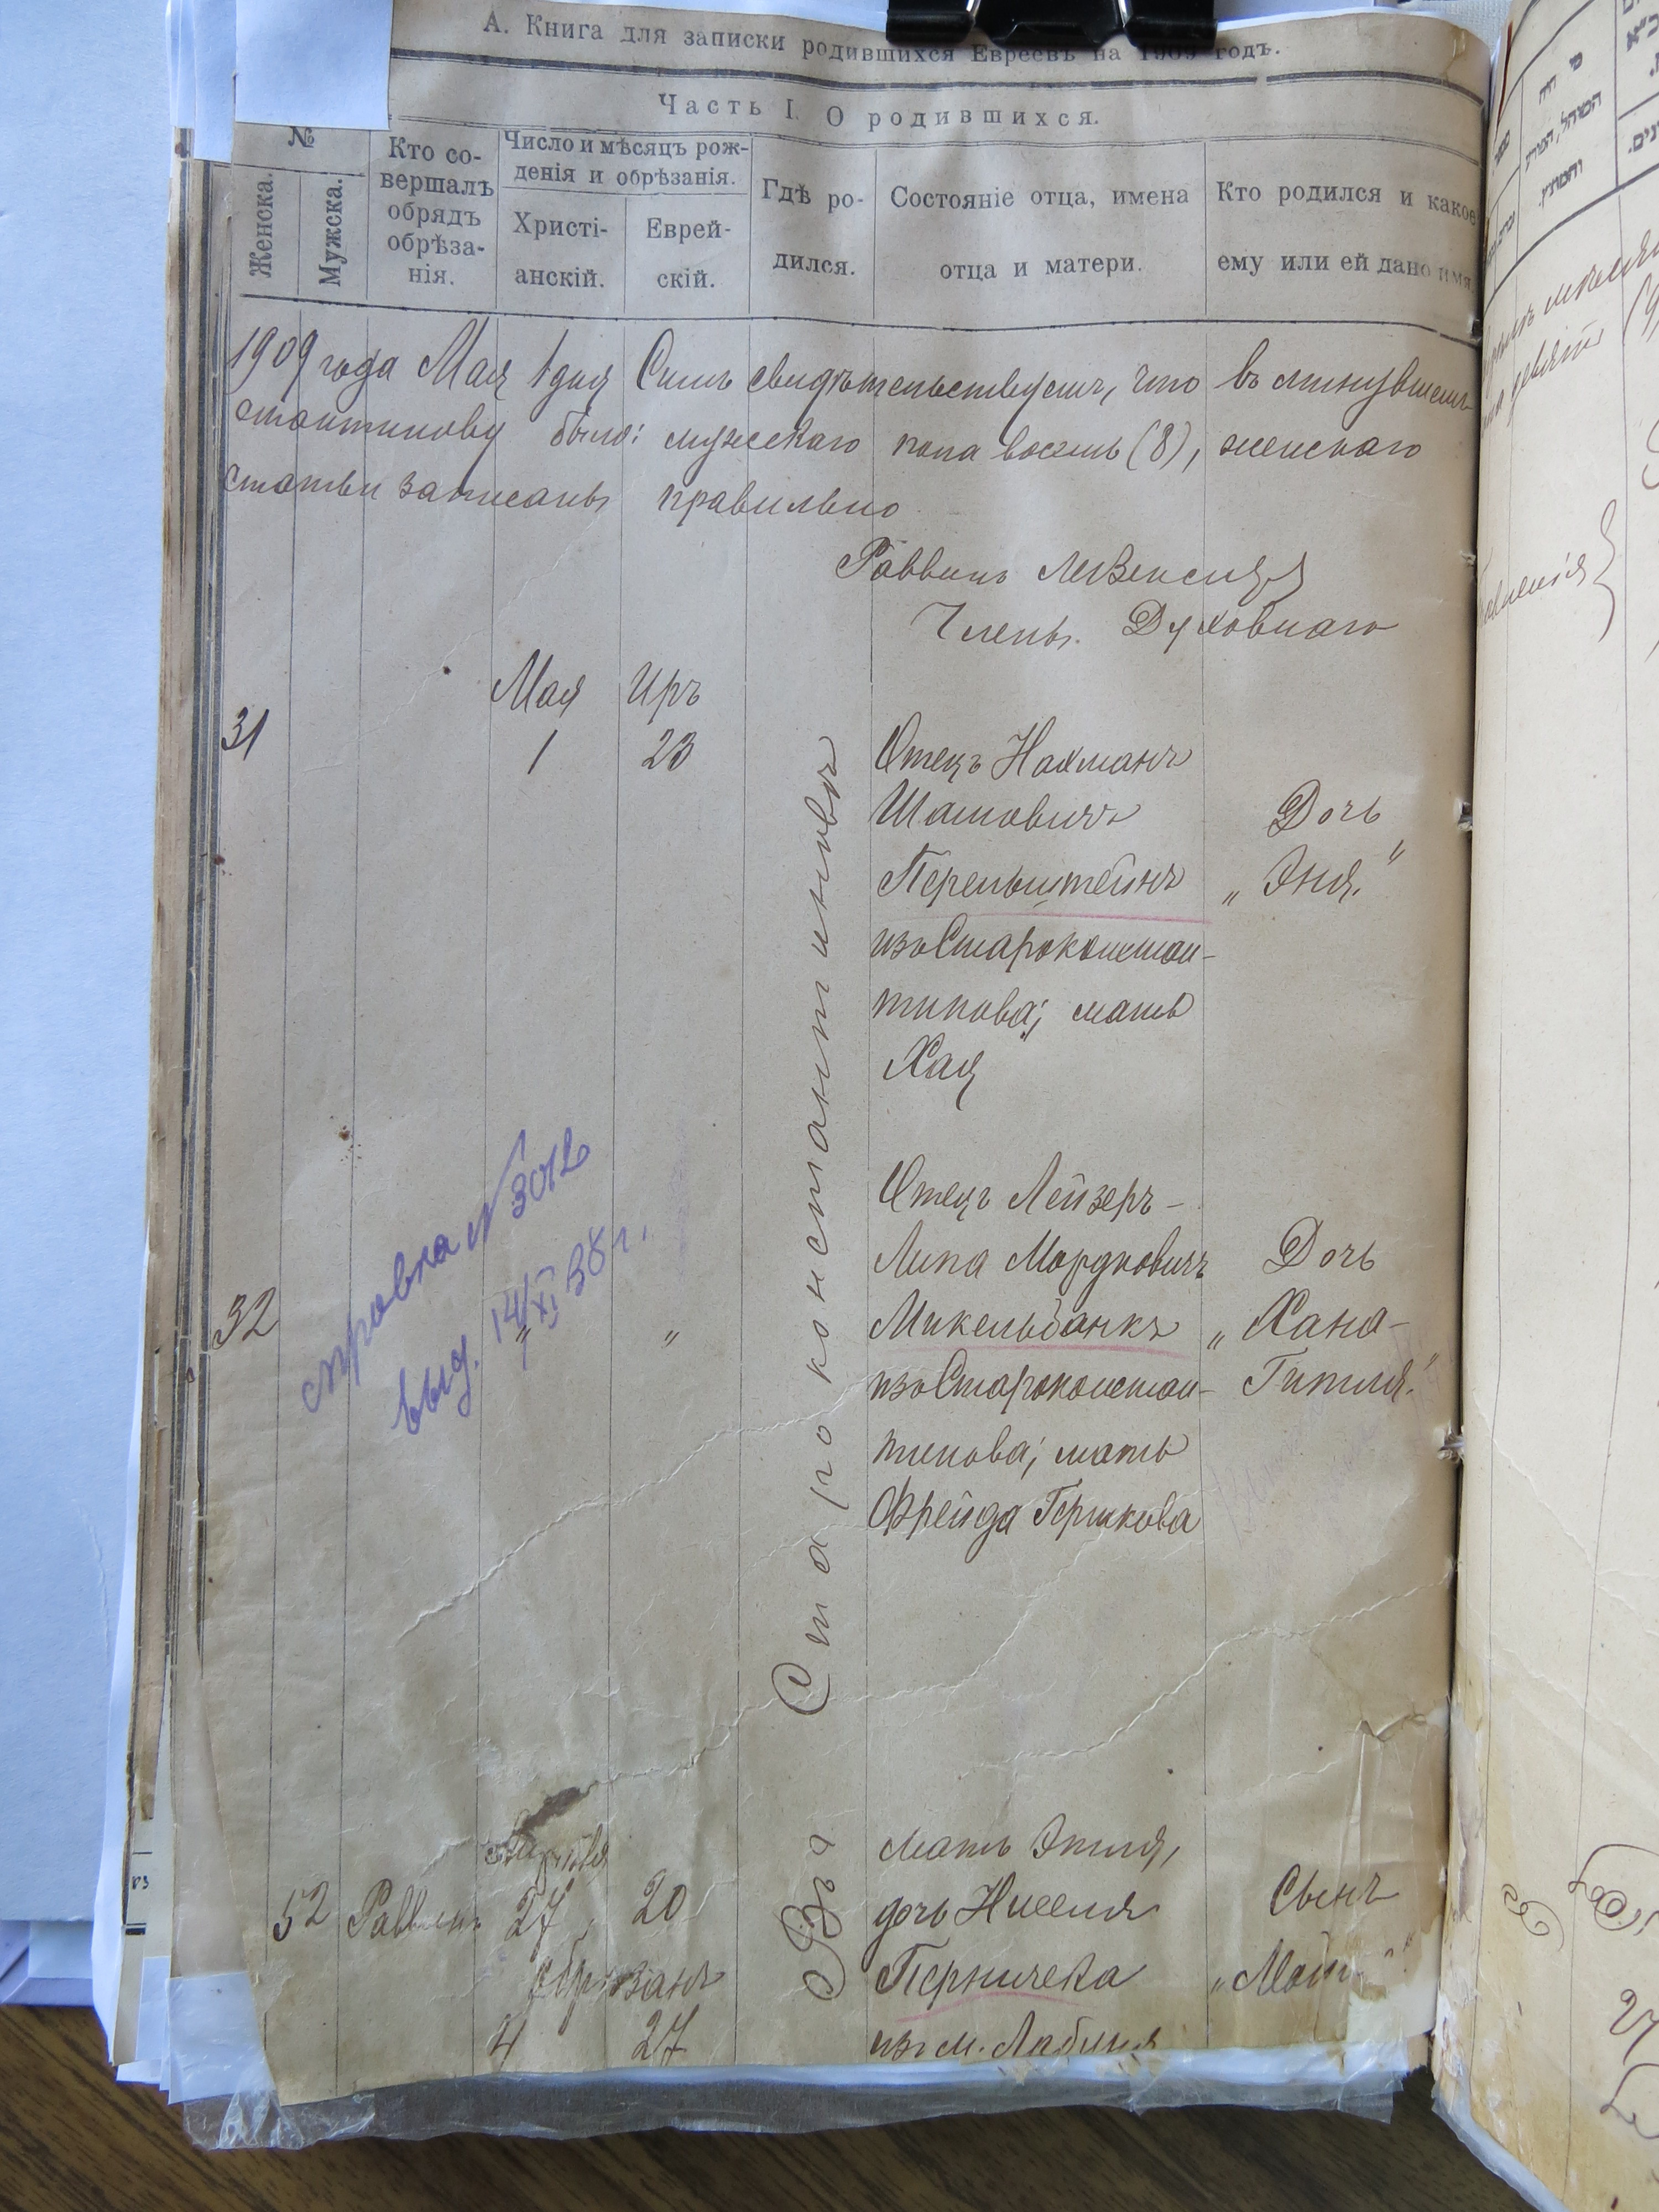 А. Книга для записки родившихся Евреевъ на 1909 годъ.
Часть I. О родившихся.
№
Женска.
Мужска.
Кто со-
вершалъ
обрядъ
обрѣза-
нія.
Число и мѣсяцъ рож-
денія и обрѣзанія.
Христі-
анскій.
Еврей-
скій.
Гдѣ ро-
дился.
Состояніе отца, имена
отца и матери.
Кто родился и какое
ему или ей дано имя
1909 года Мая 1 дня Симъ свидѣтельствуемъ, что въ минувшемъ
стантинову было: мужескаго пола восемь (8), женскаго
статьи записаны правильно
Раввинъ
Члены Духовнаго
Мая Иръ
31 1 23
Отецъ Нахманъ
Шамовичъ
Перельштейнъ
изъ Староконстан-
тинова; мать
Хая
Дочь
„Эня.“
Староконстантиновъ
справка № 3012
выд. 14/XI 38 г.
32 „ „
Отецъ Лейзеръ-
Липа Мордковичъ
Микельбанкъ
изъ Староконстан-
тинова; мать
Фрейда Гершкова
Дочь
„Хана-
Гитля.“
Въ
52 Раввинъ 27 20
обрѣзанъ
4 27
мать Этля,
дочь Ниселя
Перничека
изъ м.
Сынъ